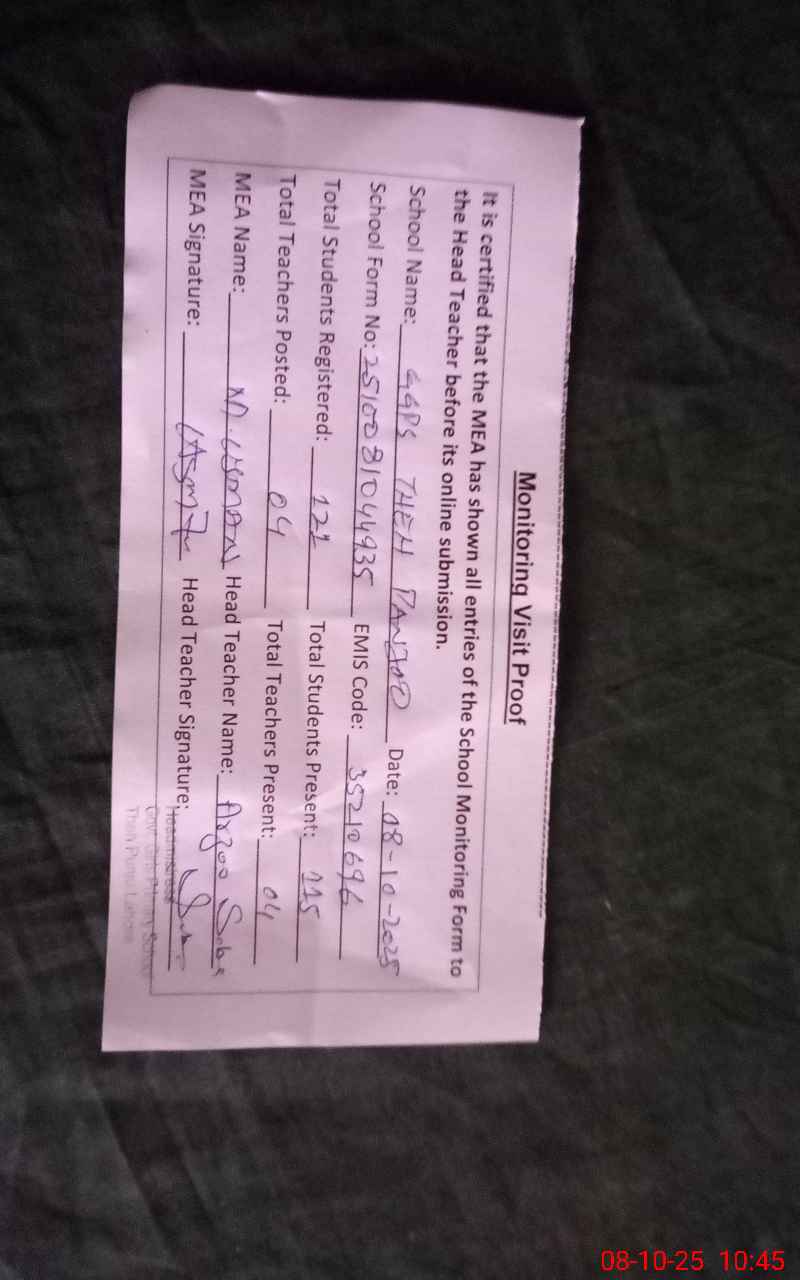 Monitoring Visit Proof
It is certified that the MEA has shown all entries of the School Monitoring Form to
the Head Teacher before its online submission.
School Name: GGPS THEH PANJOO Date: 08-10-2025
School Form No: 2510081044935 EMIS Code: 35210696
Total Students Registered: 121 Total Students Present: 115
Total Teachers Posted: 04 Total Teachers Present: 04
MEA Name: M. USMAN Head Teacher Name: Arzoo Saba
MEA Signature: Head Teacher Signature:
Headmistress
Govt. Girls Primary School
Theh Lahore
08-10-25 10:45